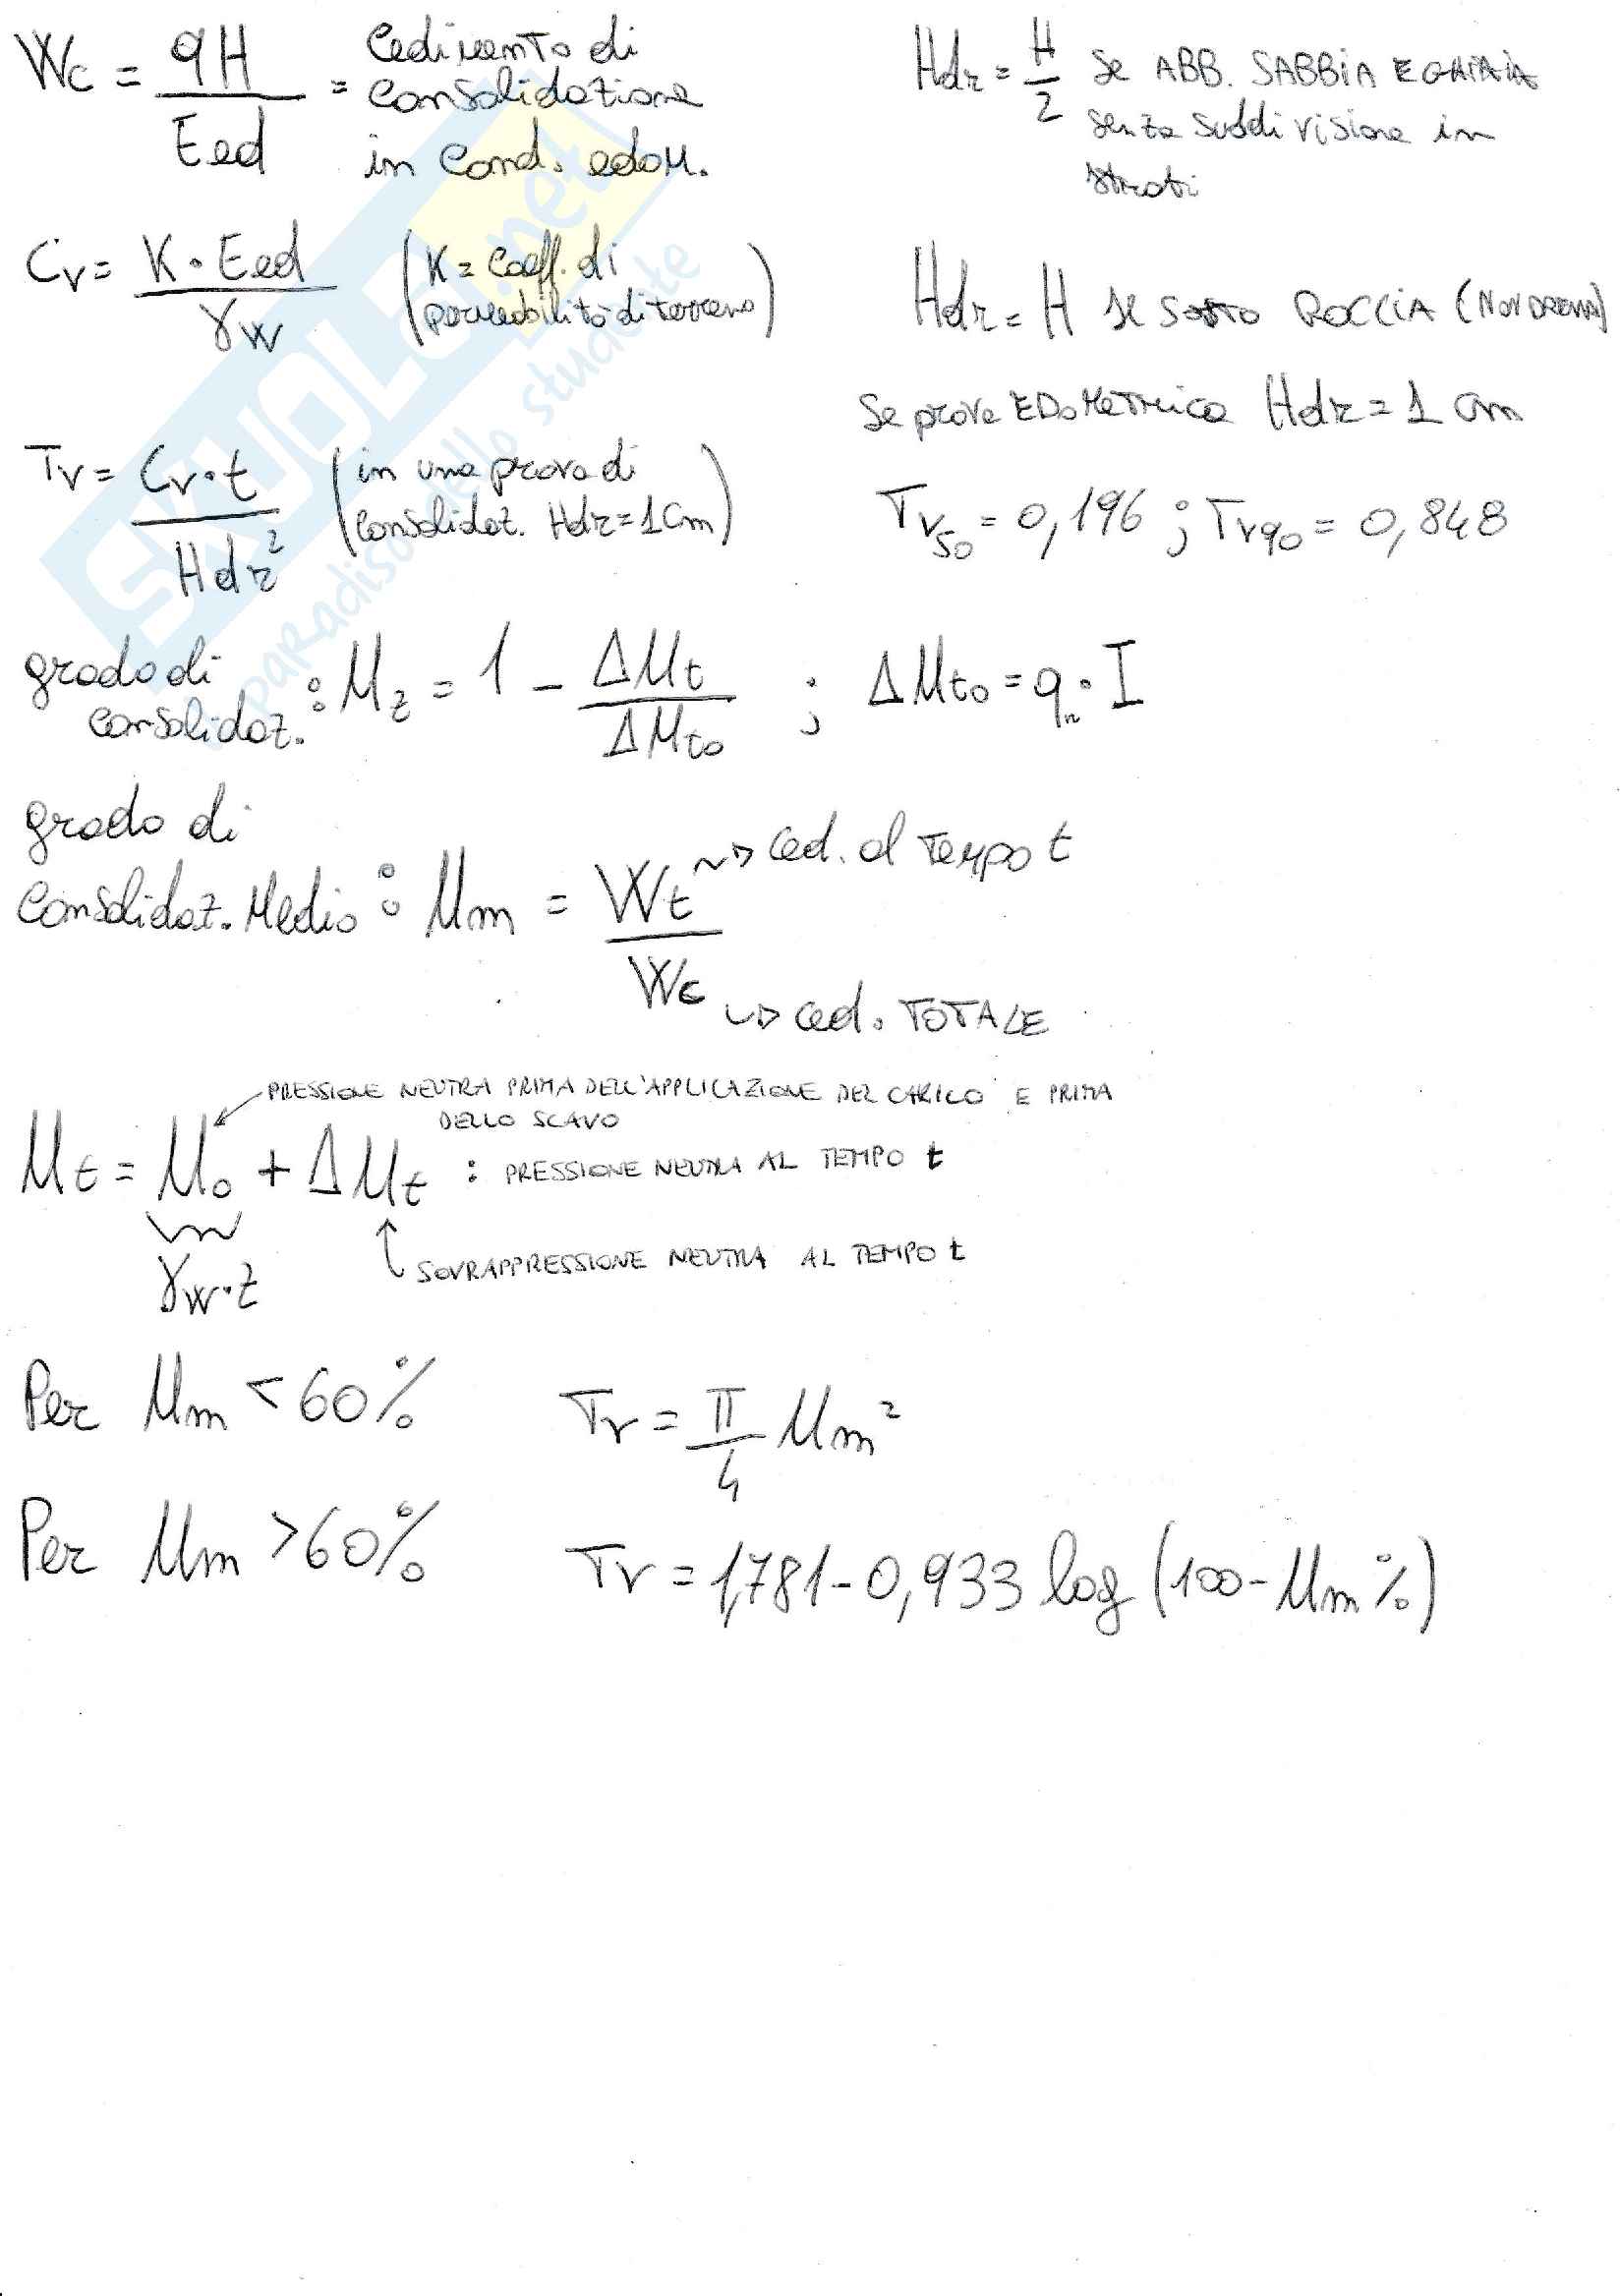 Wc = qH / Eed = Cedimento di consolidazione in cond. edom.
Hdr = H/2 se ABB. SABBIA E GHIAIA
senza suddivisione in
strati
Cv = K · Eed / γw (K = coeff. di permeabilità di terreno)
Hdr = H se sotto ROCCIA (NON DRENA)
Se prova EDOMETRICA Hdr = 1 cm
Tv = Cv · t / Hdr² (in una prova di consolidaz. Hdr = 1 cm)
Tv50 = 0,196 ; Tv90 = 0,848
grado di
consolidaz. : Uz = 1 - ΔUt / ΔUt0 ; ΔUt0 = qn · I
grado di
consolidaz. Medio : Um = Wt / Wc
ced. al tempo t
ced. TOTALE
PRESSIONE NEUTRA PRIMA DELL'APPLICAZIONE DEL CARICO E PRIMA
DELLO SCAVO
Ut = U0 + ΔUt : PRESSIONE NEUTRA AL TEMPO t
γw · z
SOVRAPPRESSIONE NEUTRA AL TEMPO t
Per Um < 60% Tv = π/4 Um²
Per Um > 60% Tv = 1,781 - 0,933 log (100 - Um%)
SKUOLA.net
paradiso dello studente